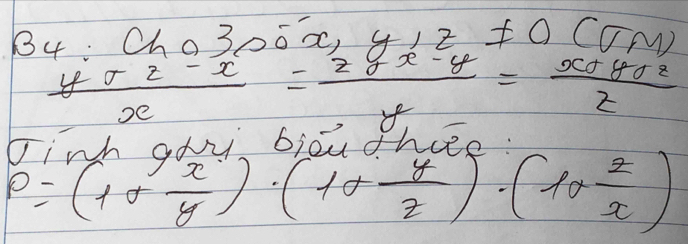 B4: Cho 3 số x, y, z ≠ 0 (TM)
\frac{y + z - x}{x} = \frac{z + x - y}{y} = \frac{x + y + z}{z}
Tính gtrị biểu thức:
P = (1 + \frac{x}{y}) . (1 + \frac{y}{z}) . (1 + \frac{z}{x})